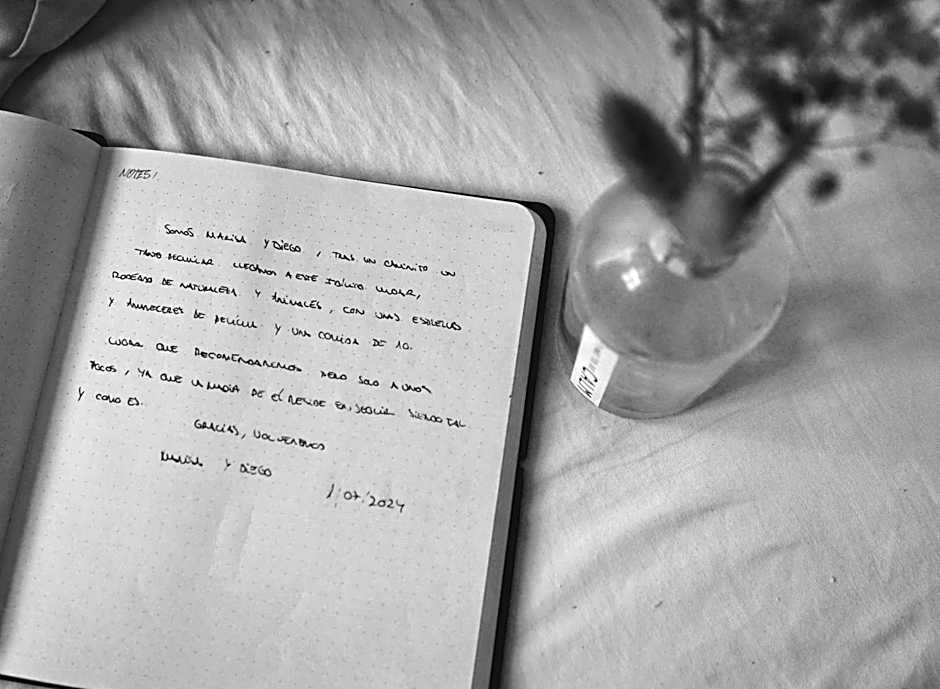 NOTES!
SOMOS MARISA Y DIEGO, TRAS UN CAMINITO UN
TANTO PECULIAR LLEGAMOS A ESTE IDÍLICO LUGAR,
RODEADO DE NATURALEZA Y ANIMALES, CON UNAS ESTRELLAS
Y AMANECERES DE PELÍCULA Y UNA COMIDA DE 10.
LUGAR QUE RECOMENDAREMOS PERO SOLO A UNOS
POCOS, YA QUE LA MAGIA DE ÉL RESIDE EN SEGUIR SIENDO TAL
Y COMO ES.
GRACIAS, VOLVEREMOS
MARISA Y DIEGO
07/2024